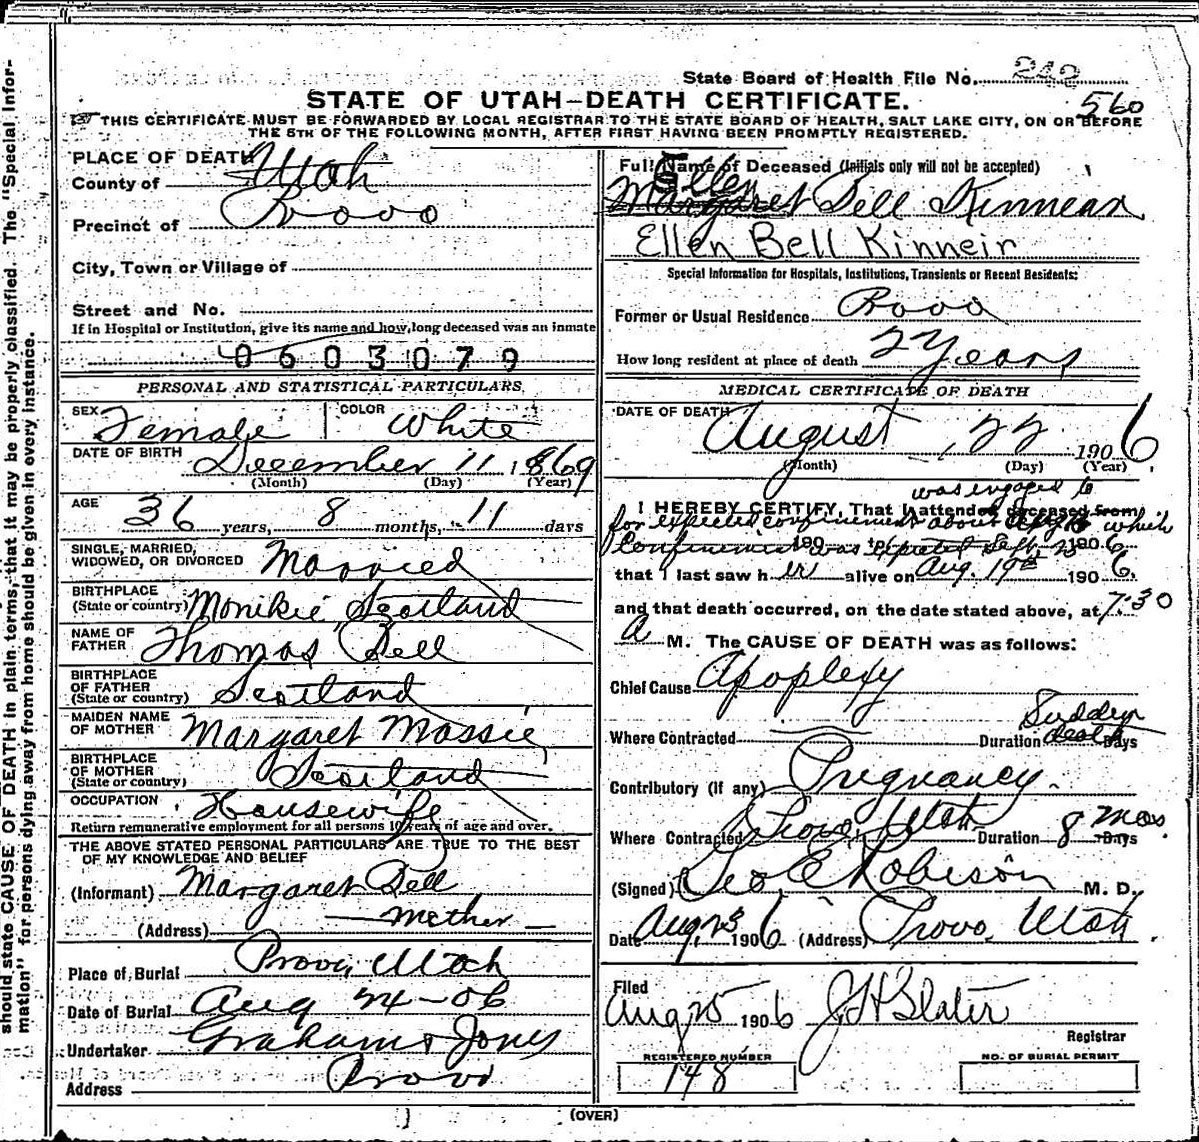 State Board of Health File No. 242
560
STATE OF UTAH—DEATH CERTIFICATE.
THIS CERTIFICATE MUST BE FORWARDED BY LOCAL REGISTRAR TO THE STATE BOARD OF HEALTH, SALT LAKE CITY, ON OR BEFORE
THE 5TH OF THE FOLLOWING MONTH, AFTER FIRST HAVING BEEN PROMPTLY REGISTERED.
PLACE OF DEATH
County of Utah
Precinct of Provo
City, Town or Village of
Street and No.
If in Hospital or Institution, give its name and how long deceased was an inmate
0603079
PERSONAL AND STATISTICAL PARTICULARS
SEX Female COLOR White
DATE OF BIRTH December 11, 1869
(Month) (Day) (Year)
AGE 36 years, 8 months, 11 days
SINGLE, MARRIED,
WIDOWED, OR DIVORCED Married
BIRTHPLACE
(State or country) Monikie Scotland
NAME OF
FATHER Thomas Bell
BIRTHPLACE
OF FATHER
(State or country) Scotland
MAIDEN NAME
OF MOTHER Margaret Massie
BIRTHPLACE
OF MOTHER
(State or country) Scotland
OCCUPATION Housewife
Return remunerative employment for all persons 10 years of age and over.
THE ABOVE STATED PERSONAL PARTICULARS ARE TRUE TO THE BEST
OF MY KNOWLEDGE AND BELIEF
(Informant) Margaret Bell
(Address) — Mother —
Place of Burial Provo, Utah
Date of Burial Aug 24-06
Undertaker Graham & Jones
Address Provo
Full Name of Deceased (Initials only will not be accepted)
Ellen
Margaret Bell Kinnear
Ellen Bell Kinneir
Special Information for Hospitals, Institutions, Transients or Recent Residents:
Former or Usual Residence Provo
How long resident at place of death 22 Years
MEDICAL CERTIFICATE OF DEATH
DATE OF DEATH August, 22 1906
(Month) (Day) (Year)
was engaged
I HEREBY CERTIFY, That I attended deceased from
for expected confinement about which
Confinement was expected Sept. 1906
that I last saw her alive on Aug. 19th 1906.
and that death occurred, on the date stated above, at 7:30
A M. The CAUSE OF DEATH was as follows:
Chief Cause Apoplexy
Sudden
Where Contracted Duration death Days
Contributory (if any) Pregnancy.
Where Contracted Provo, Utah Duration 8 mos. Days
(Signed) Geo E Robison M. D.
Date Aug. 23 1906 (Address) Provo, Utah.
Filed
Aug 25 1906 J H Slater
Registrar
REGISTERED NUMBER
148
NO. OF BURIAL PERMIT
(OVER)
should state CAUSE OF DEATH in plain terms, that it may be properly classified. The "Special Infor-
mation" for persons dying away from home should be given in every instance.